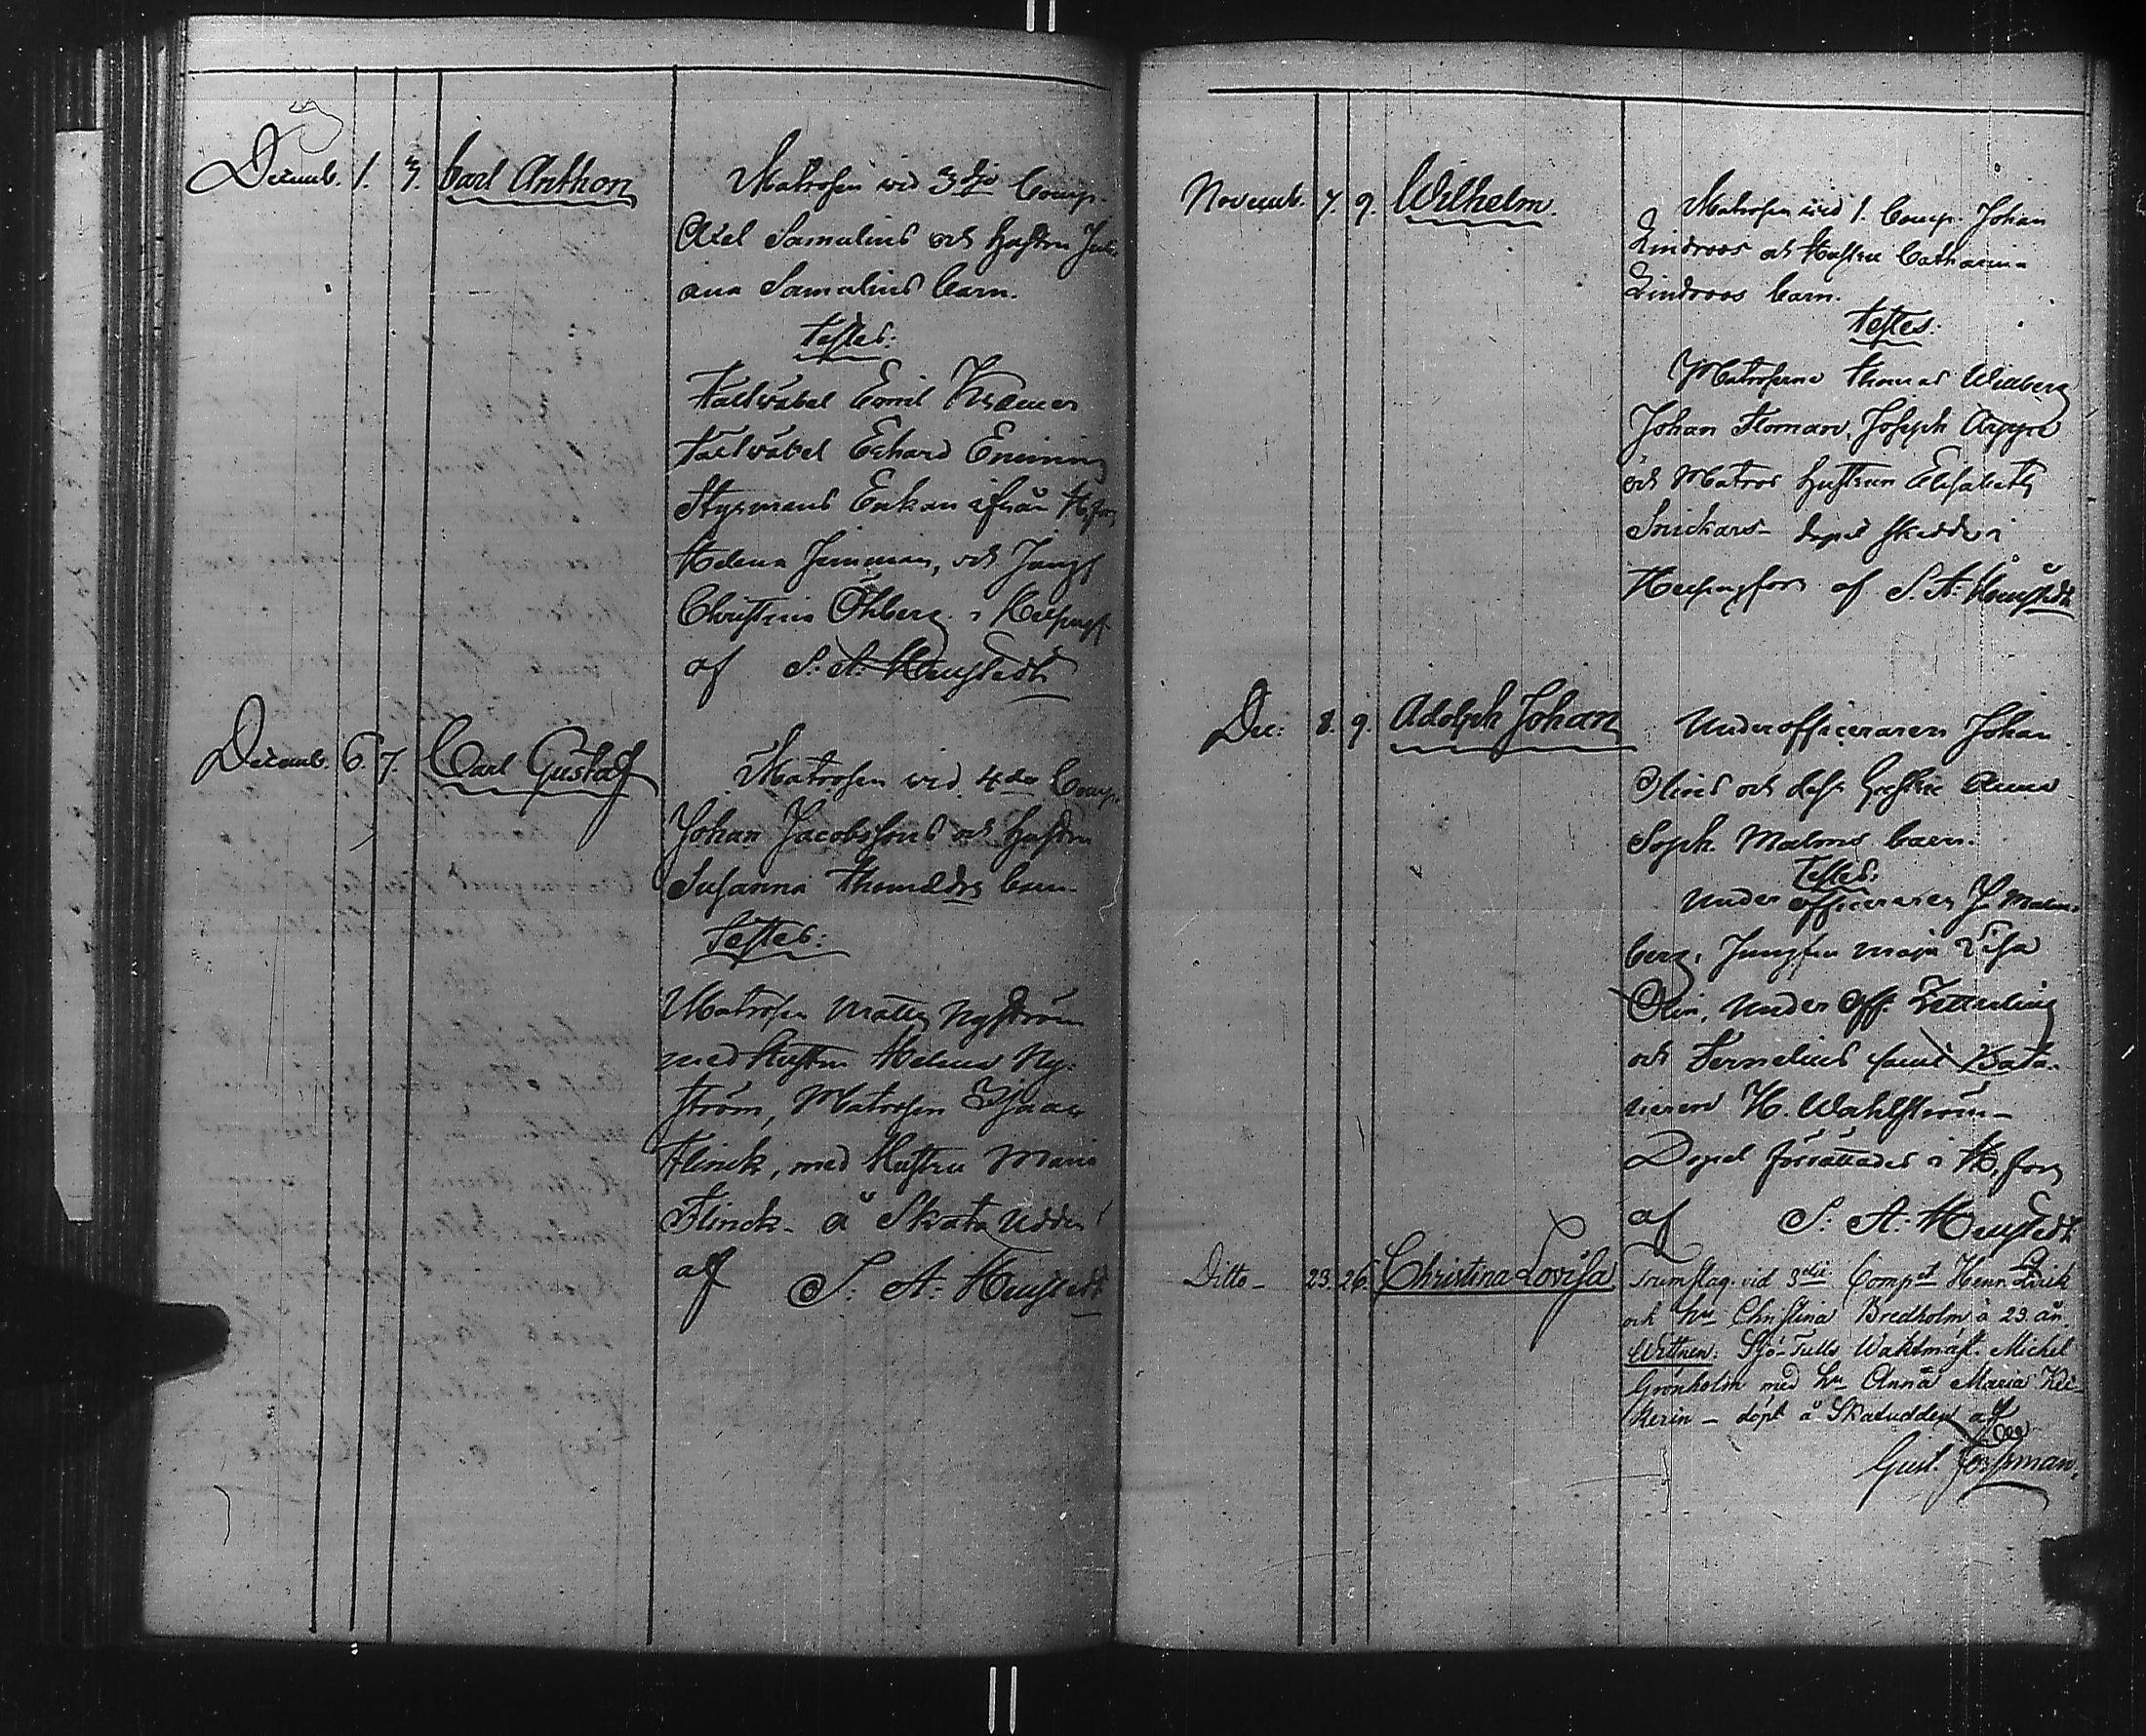 Decemb. 1. 3. Carl Anthon
Matrosen wid 3dje Comp.
Axel Samulins och Hustru Juli
ana Samulins barn.
Testes:
Fältväbel Emil
Fältväbel Enrning
Styrmans Enkan ifrån H,fors
Helena och Jungf
Christina Öhberg i Helsingf.
af S. A. Heustedt
Decemb. 6. 7. Carl Gustaf
Matrosen wid 4de Comp.
Johan Jacobssons och Hustru
Susanna Thomædrs barn.
Testes:
Matrosen Matts Nyström
med Hustru Helena Ny-
ström, Matrosen Isaac
Flinck, med Hustru Maria
Flinck - å Skata Udden
af S: A: Heustedt
Novemb. 7. 9. Wilhelm.
Matrosen wid 1. Comp. Johan
Lindroos och Hustru Catharina
Lindroos barn.
Testes:
Matroserne Thomas Widberg
Johan Floman, Joseph
och Matros Hustrun Elisabeth
Snickars - dopet skedde i
Helsingfors af S. A. Heustedt
Dec: 8. 9. Adolph Johan
Underofficeraren Johan
Olins och dess Hustru Anna
Soph. Malms barn.
Testes:
Under officeraren J. Malm-
berg, Jungfru Maja Lisa
Olin, Under Off. Zetterling
och Fernelius samt
H. Wahlström -
Dopet förrättades i H,fors
af S: A: Heustedt
Ditto - 23. 26. Christina Lovisa
Trumslag. vid 3dje Compet Henr.
och hu Christina Bredholm à 23. år.
Wittnen: Sjö-Tulls Waktmäst. Michel
Grönholm med hu Anna Maria Kec-
kerin - döpt å Skatudden af
Gust. Forssman.